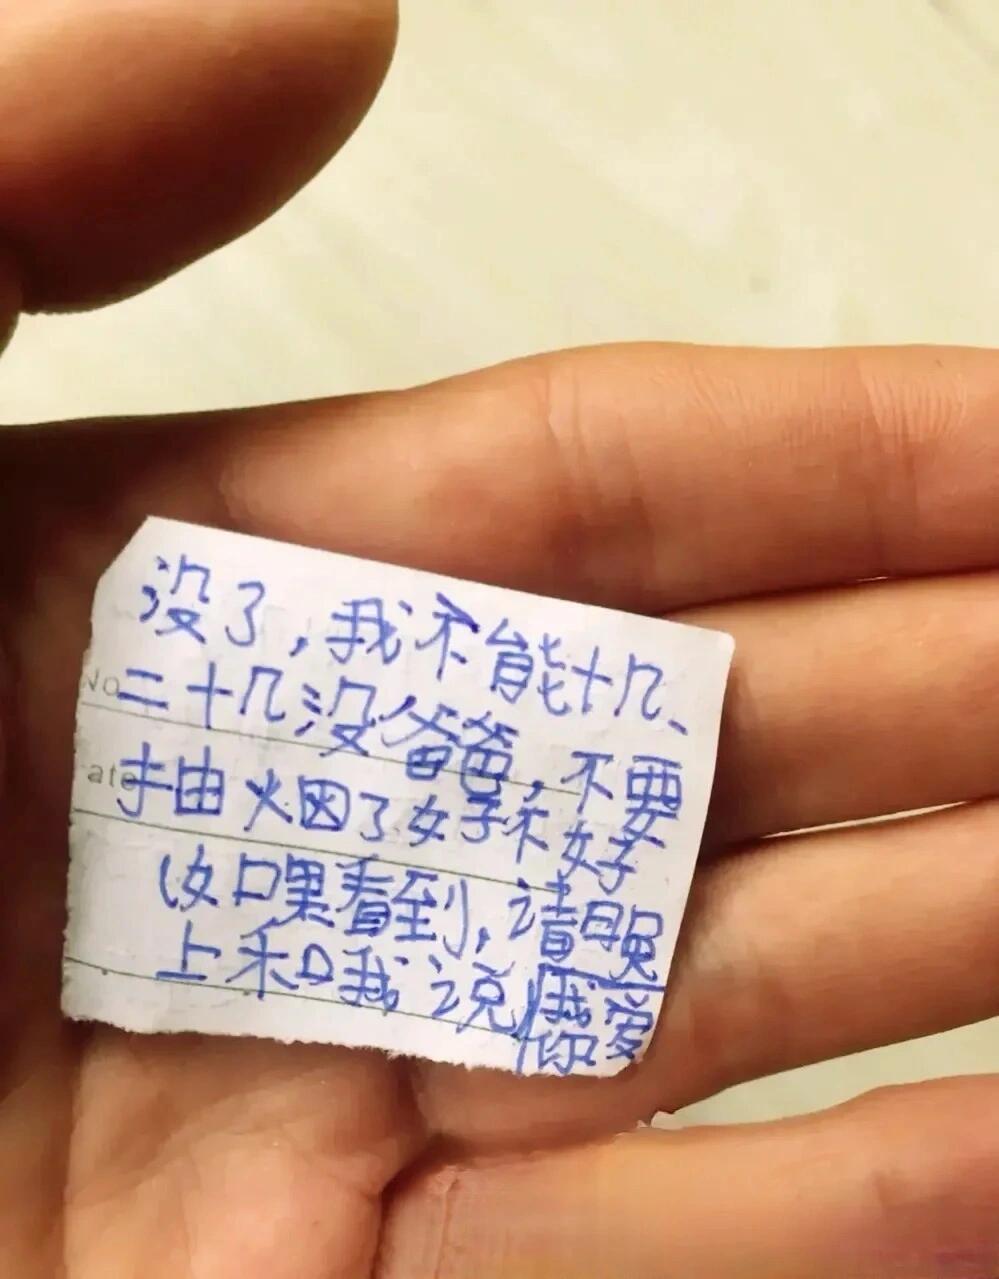 没了，我不能十几、
No
二十几没爸爸，不要
ate
抽烟了好不好
如果看到，请晚
上和我说我爱
你